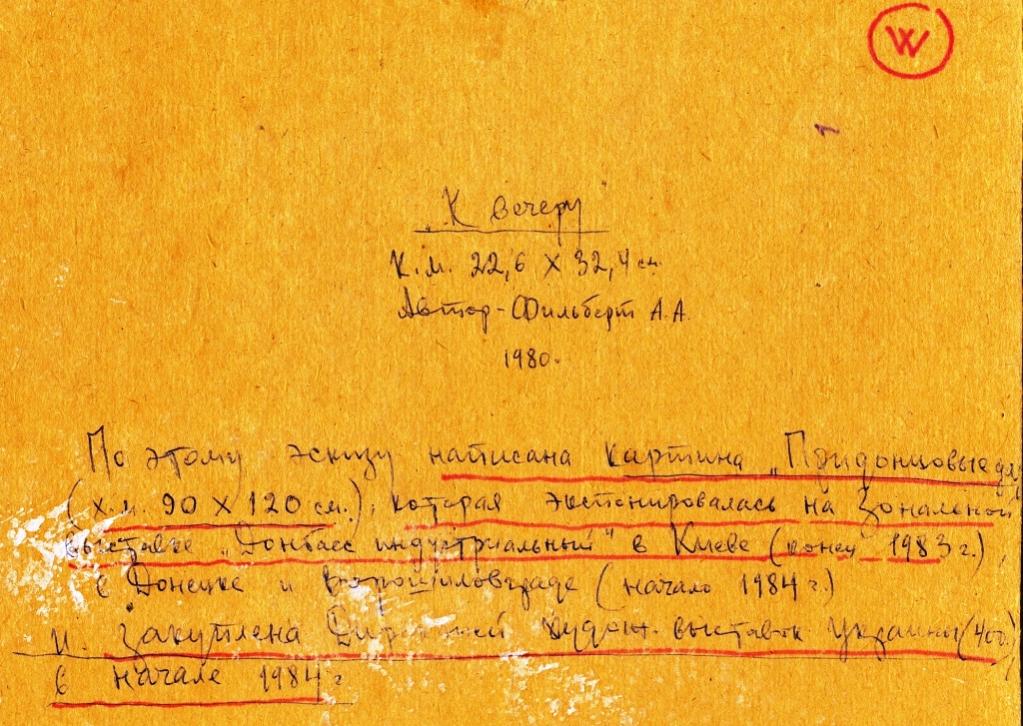 W
„К вечеру"
К.М. 22,6 X 32,4 см.
Автор - Фильберт А.А.
1980.
По этому эскизу написана картина „Придонцовые
(х.м. 90 X 120 см.), которая экспонировалась на Зональной
выставке „Донбасс индустриальный" в Киеве (конец 1983 г.),
в Донецке и Ворошиловграде (начало 1984 г.)
И. закуплена Дирекцией худож. выставок Украины
в начале 1984 г